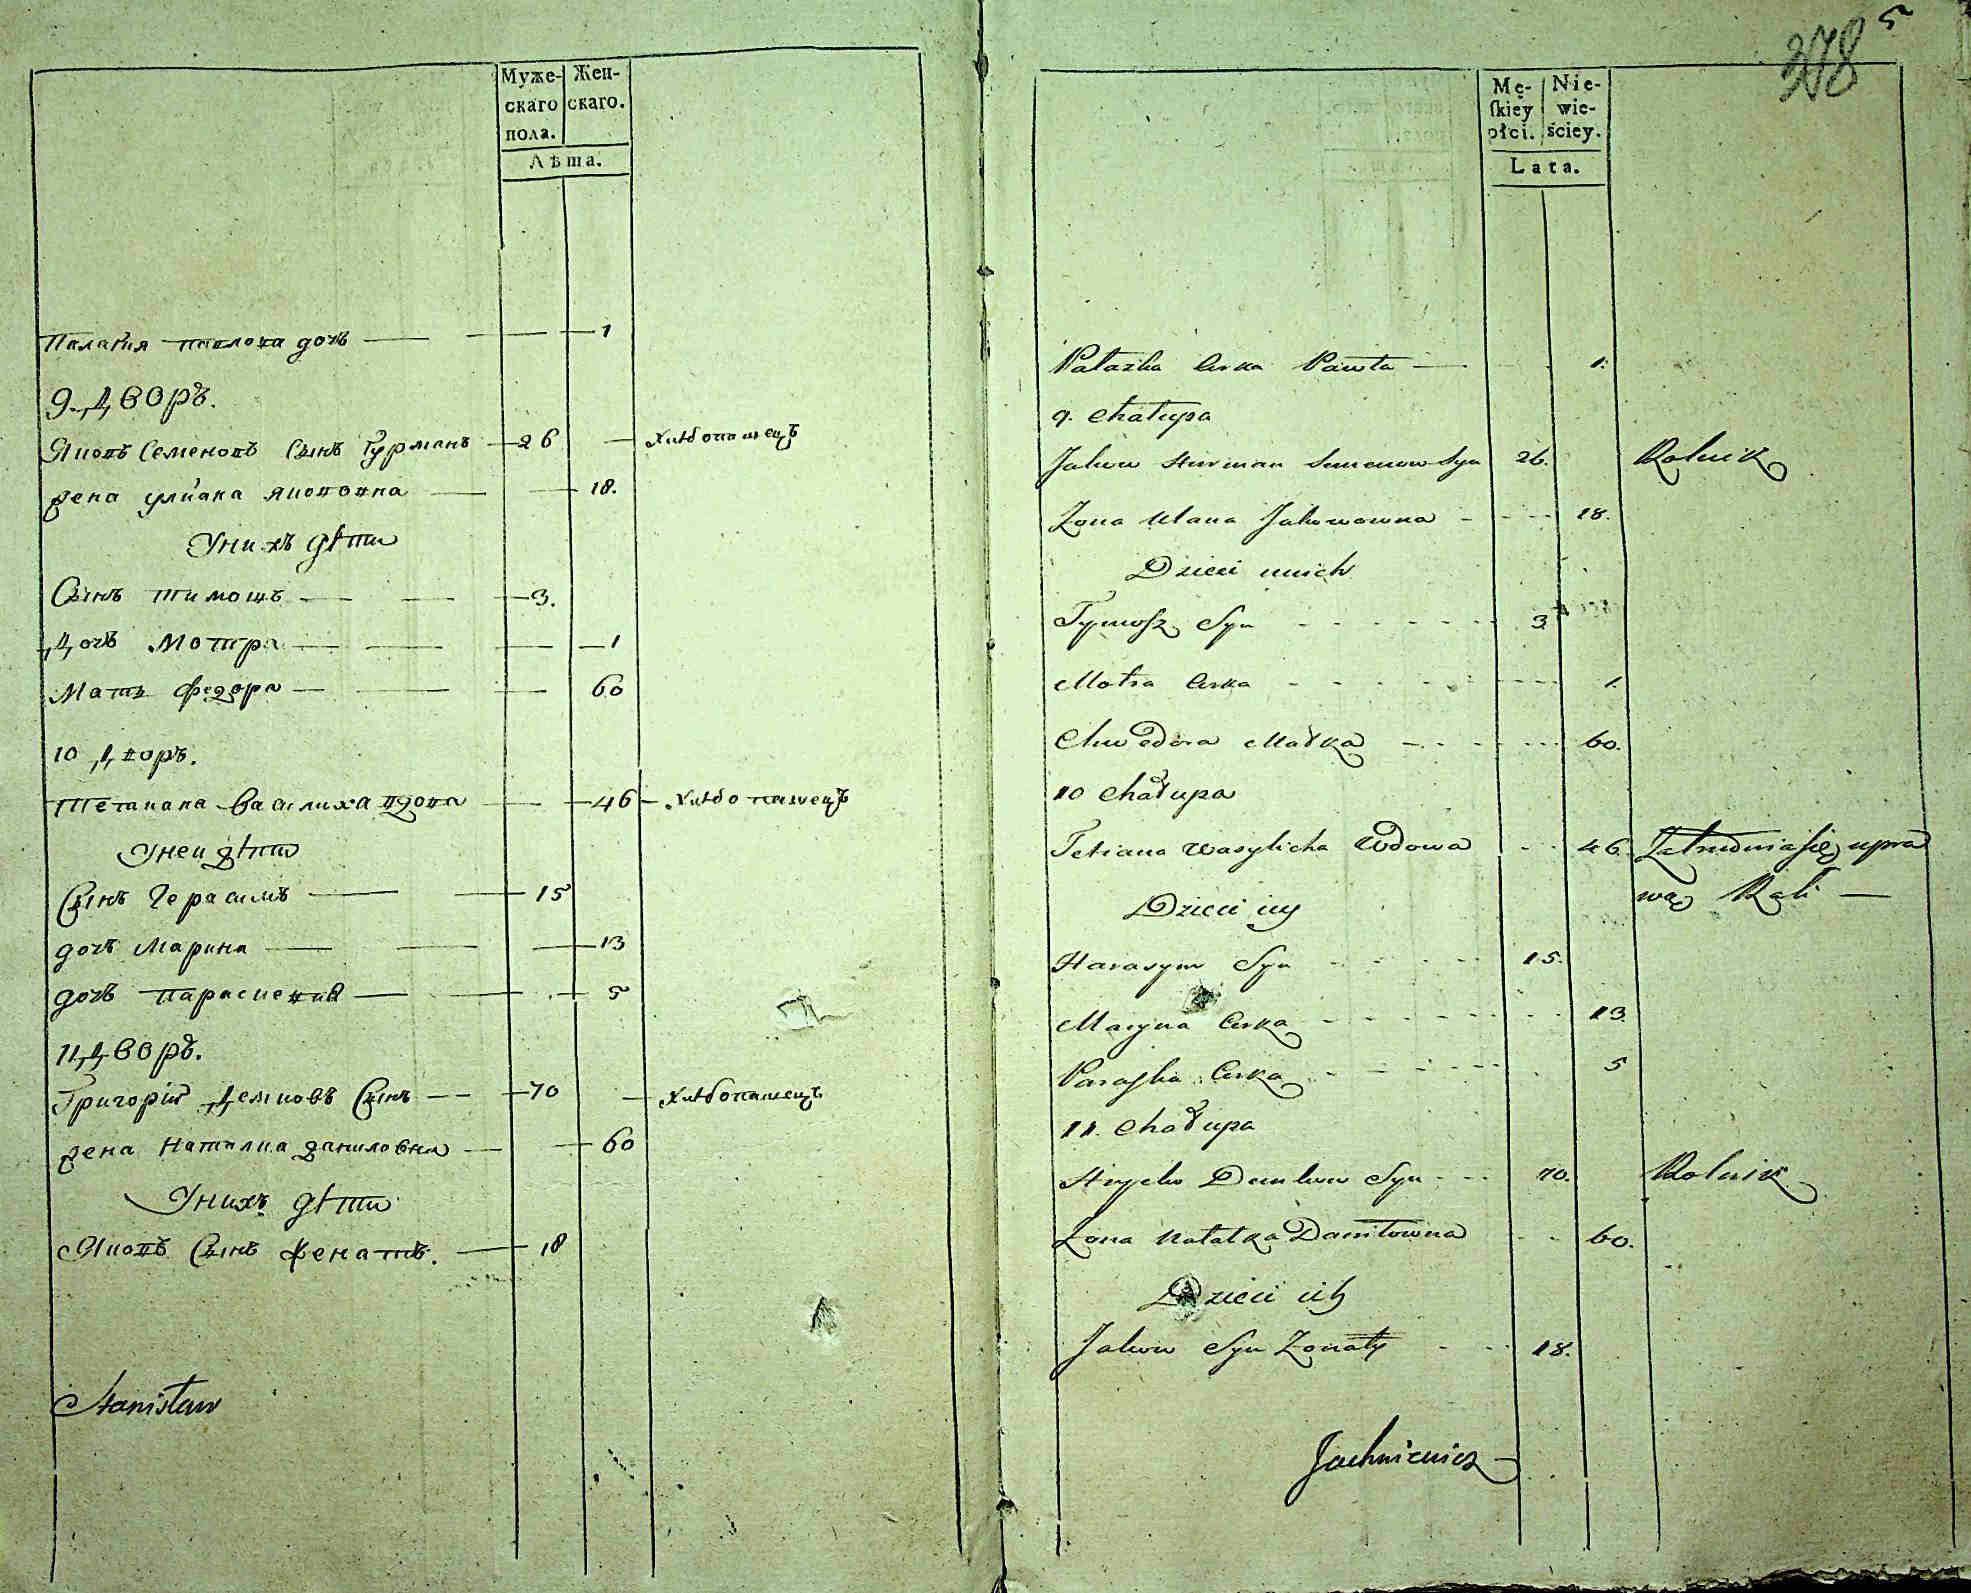 Муже-
скаго
пола.
Жен-
скаго.
Лѣта.
Палагия павлова дочь 1
9. Дворъ.
Яковъ Семеновъ Сынъ Гурманъ 26 хлѣбопашецъ
жена улиана якововна 18.
У нихъ дѣти
Сынъ тимошъ 3.
Дочь Мотра 1
Мать федора 60
10 Дворъ.
Тетиана василиха вдова 46 хлѣбопашецъ
У неи дѣти
Сынъ Герасимъ 15
дочь Марина 13
дочь 5
11 Дворъ.
Григорій Демковъ Сынъ 70 хлѣбопашецъ
жена Наталка даниловна 60
У нихъ дѣти
Яковъ Сынъ женатъ. 18
Stanisław
378
5
Mę-
ſkiey
płci.
Nie-
wie-
ściey.
Lata.
Pałazka Curka Pawła 1.
9. Chałupa
Jakow Hurman Semenow Syn 26. Rolnik
Zona Ulana Jakowowna 18.
Dzieci unich
Tymoſz Syn 3
Motra Curka 1.
Chwedora Matka 60.
10 Chałupa
Tetiana Wasylicha Wdowa 46. Zatrudnia się upra
wą Roli
Dzieci iey
Harasym Syn 15.
Maryna Curka 13.
Paraſka Curka 5
11. Chałupa
Hryćko Demkow Syn 70. Rolnik
Zona Natałka Daniłowna 60.
Dzieci ich
Jakow Syn Zonaty 18.
Jachniewicz